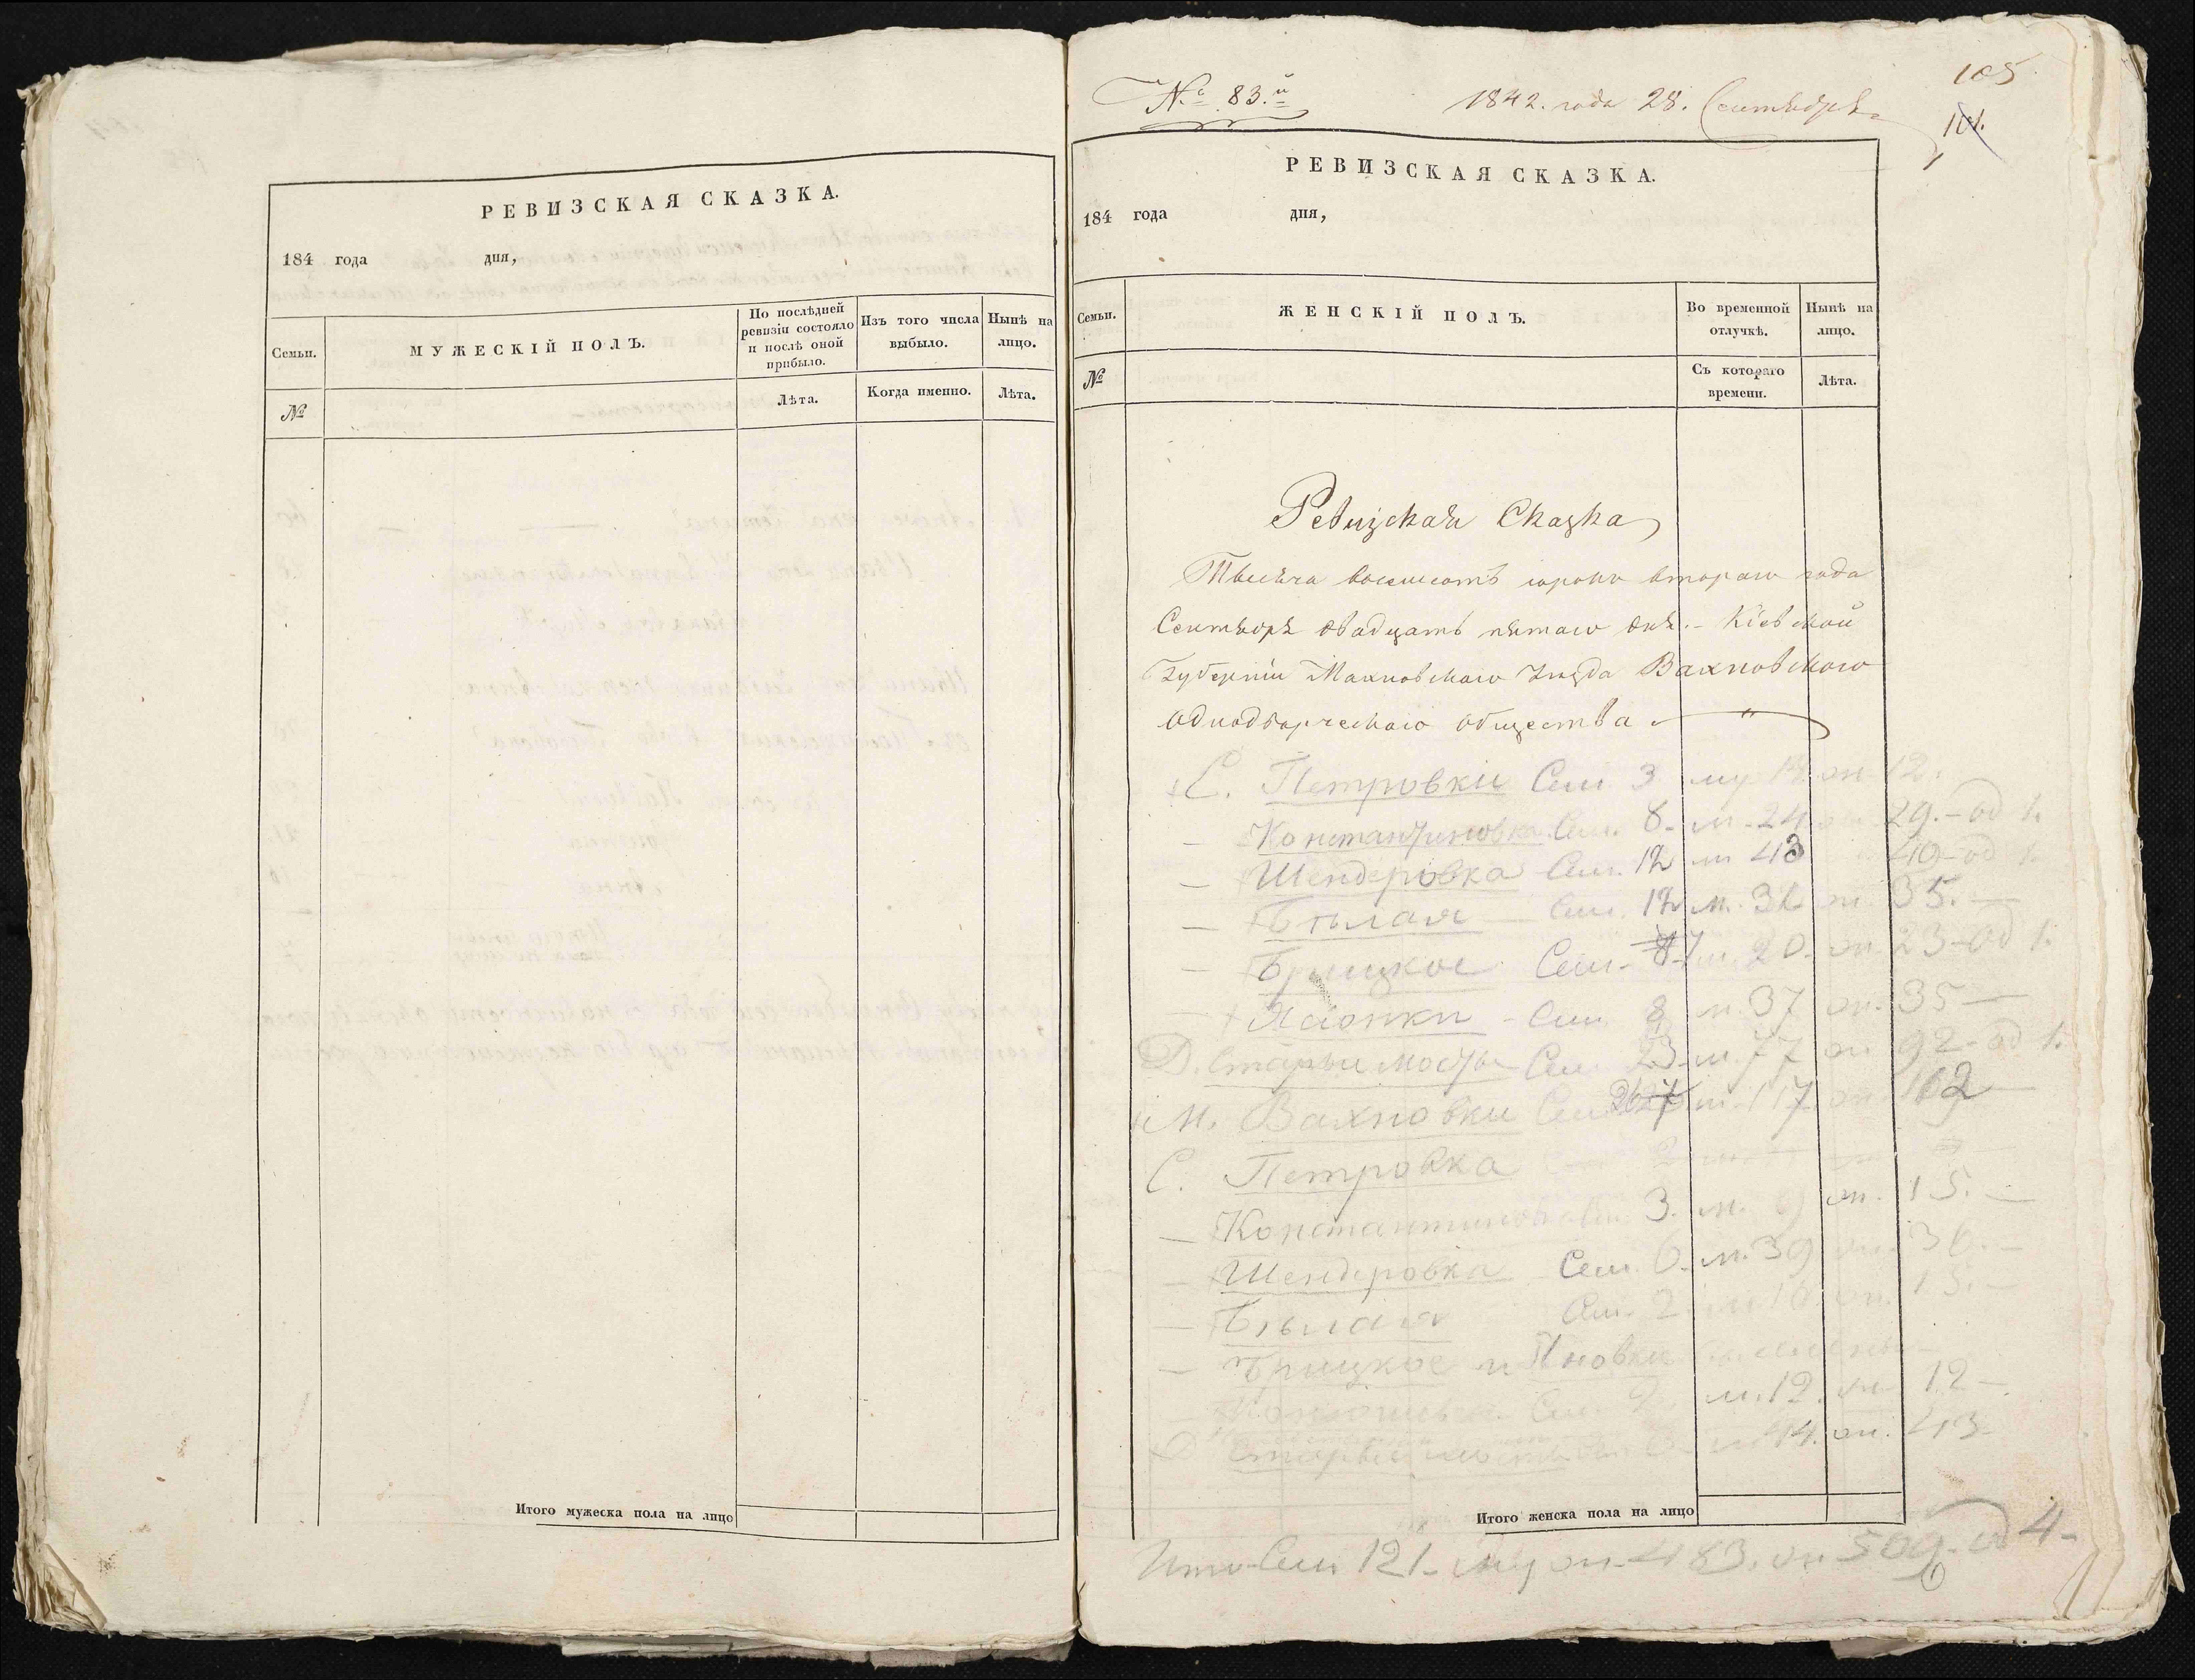 РЕВИЗСКАЯ СКАЗКА.
184 года дня,
Семьи.
МУЖЕСКІЙ ПОЛЪ.
По послѣдней ревизіи состояло и послѣ оной прибыло.
Изъ того числа выбыло.
Нынѣ на лицо.
№
Лѣта.
Когда именно.
Лѣта.
Итого мужеска пола на лицо
№ 83.й
1842. года 28. Сентября
105
101.
РЕВИЗСКАЯ СКАЗКА.
184 года дня,
Семьи.
ЖЕНСКІЙ ПОЛЪ.
Во временной отлучкѣ.
Нынѣ на лицо.
№
Съ котораго времени.
Лѣта.
Ревизская Сказка
Тысяча восемсотъ сорокъ втораго года
Сентября двадцать пятаго дня. - Кіевской
Губерніи Махновскаго Уѣзда Вахновскаго
однодворческаго общества
С. Петровки Сем. 3 му ж 12.
— Константиновка Сем. 8 - м - 24 ж 29. - од 1.
— Шендеровка Сем. 12 м 43 40 - од 1.
— Бѣлая Сем. 12 м. 32 ж. 35. —
— Брицкое Сем. 7 м. 20. ж. 23 - од 1.
— Сем 8 м. 37 ж. 35 —
Д. Старыи мосты Сем 23 - м. 77 ж 92 - од 1.
М. Вахновки Сем м. 117 ж 162 —
С. Петровка
— Константиновка Сем 3. м. 9 ж. 15. —
— Шендеровка Сем. 6. м. 39 ж. 36. —
— Бѣлая Сем. 2 м ж. 15. —
— Брицкое и
Сем 2 м. 12. ж 12 —
Д Старыи мосты м 44. ж. 43
Итого Сем 121 - муж - 483. ж 509 - од 4 -